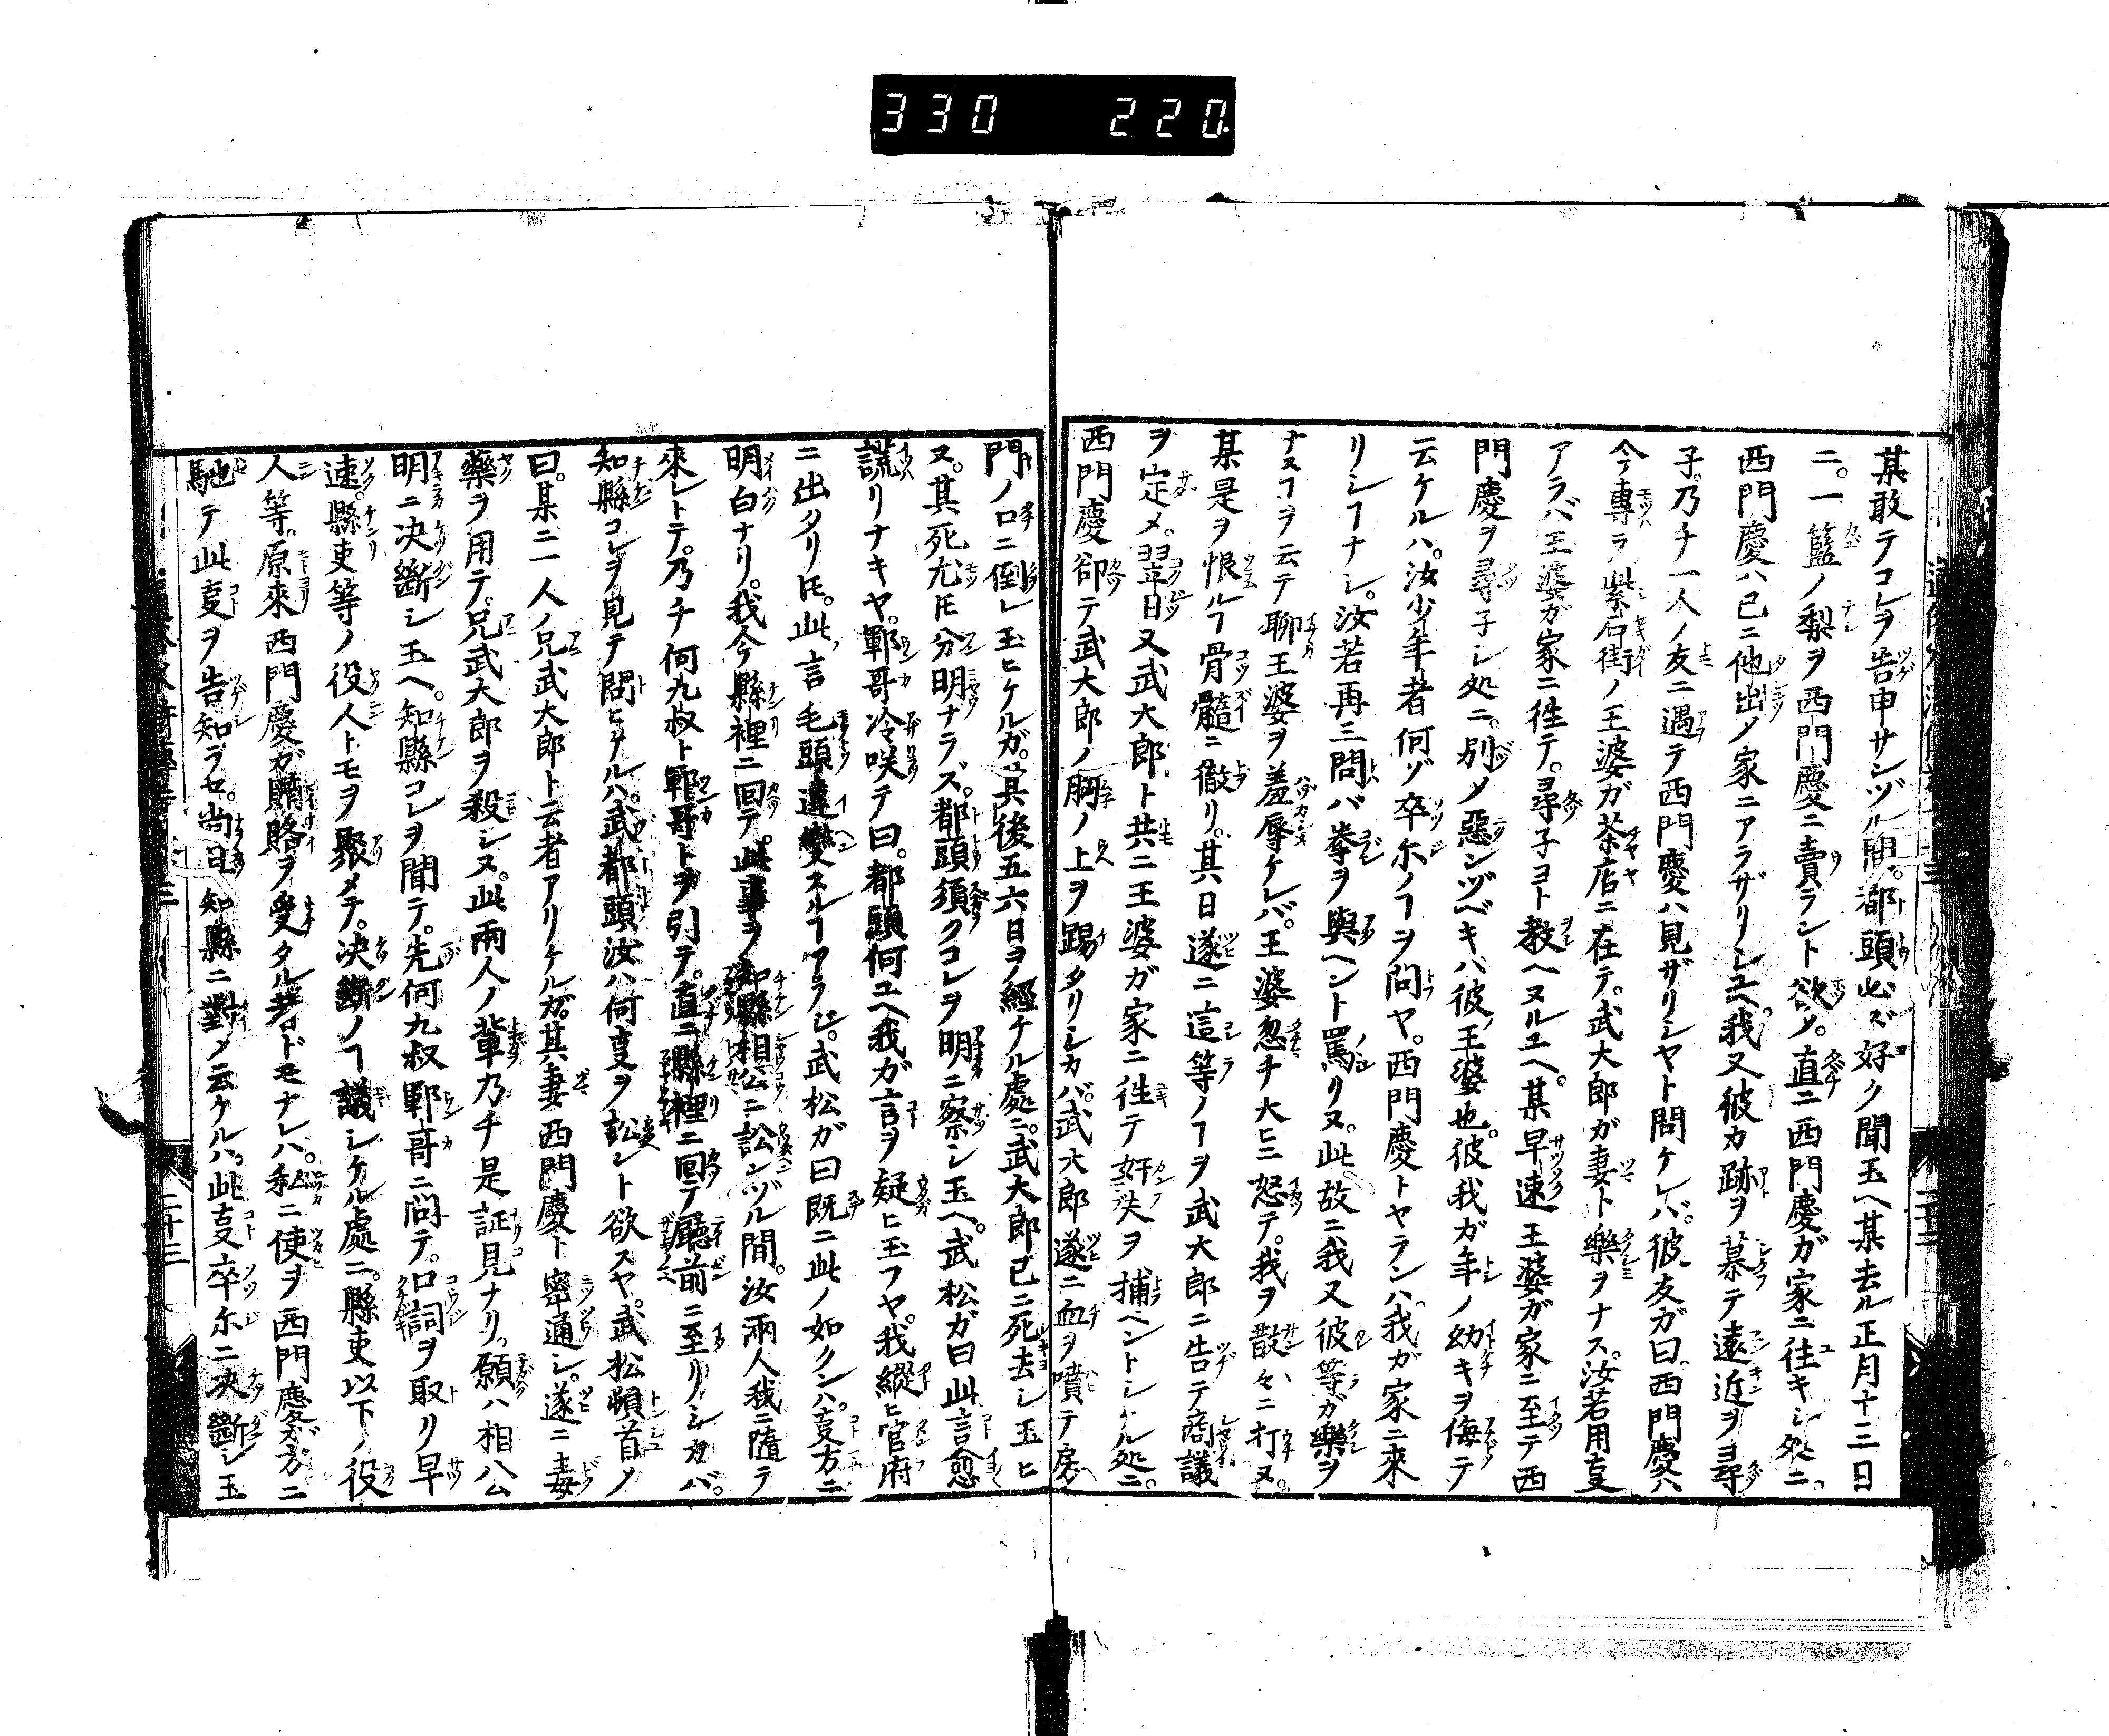 330 220
某敢テコレヲ告申サンヅル間。都頭必ズ好ク聞玉ヘ某去ル正月十三日
ニ。一籃ノ梨ヲ西門慶ニ賣ラント欲メ。直ニ西門慶ガ家ニ往キシ処ニ。
西門慶ハ已ニ他出ノ家ニアラザリシユヘ。我又彼カ跡ヲ慕テ遠近ヲヨ尋
子。乃チ一人ノ友ニ遇テ西門慶ハ見ザリシヤト問ケレバ。彼友ガ曰。西門慶ハ
今專ラ紫石街ノ王婆ガ茶店ニ在テ。武大郎ガ妻ト樂ヲナス。汝若用叓
アラバ王婆ガ家ニ徃テ。尋子ヨト教ヘヌルユヘ。某早速王婆ガ家ニ至テ西
門慶ヲ尋子シ処ニ。別メ惡ンヅベキハ彼ノ王婆也。彼我ガ年ノ幼キヲ侮テ
云ケルハ。汝少年者何ゾ卒尓ノヿヲ問ヤ。西門慶トヤランハ我ガ家ニ來
リシヿナシ。汝若再三問バ拳ヲ與ヘント罵リヌ。此故ニ我又彼等ガ樂ヲ
ナスヿヲ云テ聊王婆ヲ羞辱ケレバ。王婆忽チ大ヒニ怒テ。我ヲ散々ニ打ヌ。
某是ヲ恨ルヿ骨髓ニ徹リ。其日遂ニ這等ノヿヲ武大郎ニ告テ商議
ヲ定メ。翌日又武大郎ト共ニ王婆ガ家ニ徃テ奸夫ヲ捕ヘントシケル処ニ。
西門慶卻テ武大郎ノ胸ノ上ヲ踢タリシカバ。武大郎遂ニ血ヲ噴テ房
門ノ口ニ倒レ玉ヒケルガ。其後五六日ヲ經ケル處ニ。武大郎已ニ死去シ玉ヒ
ヌ。其死尤𪜈分明ナラズ。都頭須クコレヲ明ニ察シ玉ヘ。武松ガ曰此言愈
謊リナキヤ。鄆哥冷咲テ曰。都頭何ユヘ我ガ言ヲ疑ヒ玉フヤ。我縱ヒ官府
ニ出タリ𪜈。此言毛頭違變スルヿアラジ。武松ガ曰既ニ此ノ如クンハ。叓方ニ
明白ナリ。我今縣裡ニ回テ。此事ヲ知縣相公ニ訟ンヅル間。汝兩人我ニ隨テ
來レトテ。乃チ何九叔ト鄆哥トヲ引テ。直ニ縣裡ニ回テ廳前ニ至リシカバ。
知縣コレヲ見テ問ヒケルハ。武都頭汝ハ何叓ヲ訟ント欲スヤ。武松頓首ノ
曰。某ニ一人ノ兄武大郎ト云者アリケルガ。其妻西門慶ト密通シ。遂ニ毒
藥ヲ用テ。兄武大郎ヲ殺シヌ。此兩人ノ輩乃チ是証見ナリ。願ハ相公
明ニ决斷シ玉ヘ。知縣コレヲ聞テ。先何九叔鄆哥ニ問テ。口詞ヲ取リ早
速。縣吏等ノ役人トモヲ聚メテ。决斷ノヿ議シケル處ニ。縣吏以下ノ役
人等。原來西門慶ガ賄賂ヲ受タル者ドモナレハ。私ニ使ヲ西門慶ガ方ニ
馳テ此叓ヲ告知ラセ。尚且知縣ニ對メ云ケルハ。此叓卒尓ニ决斷シ玉
二十三